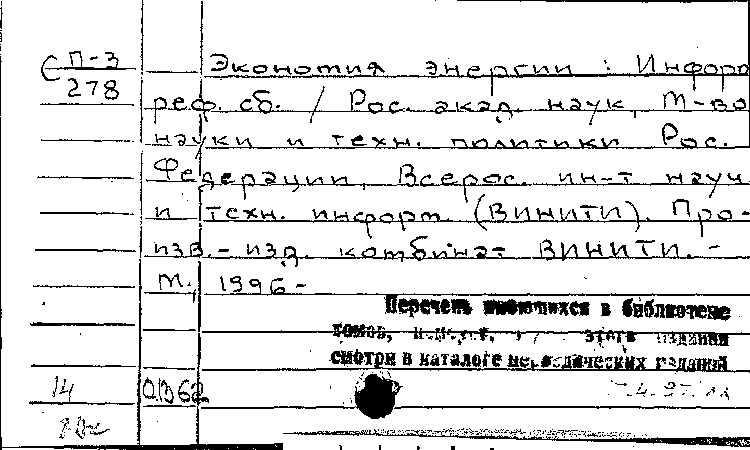 С П-3
278
Экономия энергии : Информ
реф. сб. / Рос. акад. наук, М-во
науки и техн. политики Рос.
Федерации, Всерос. ин-т науч
и техн. информ. (ВИНИТИ). Про-
изв.-изд. комбинат ВИНИТИ. -
М., 1996 -
Перечень имеющихся в библиотеке
томов, этого издания
смотри в каталоге периодических изданий
14